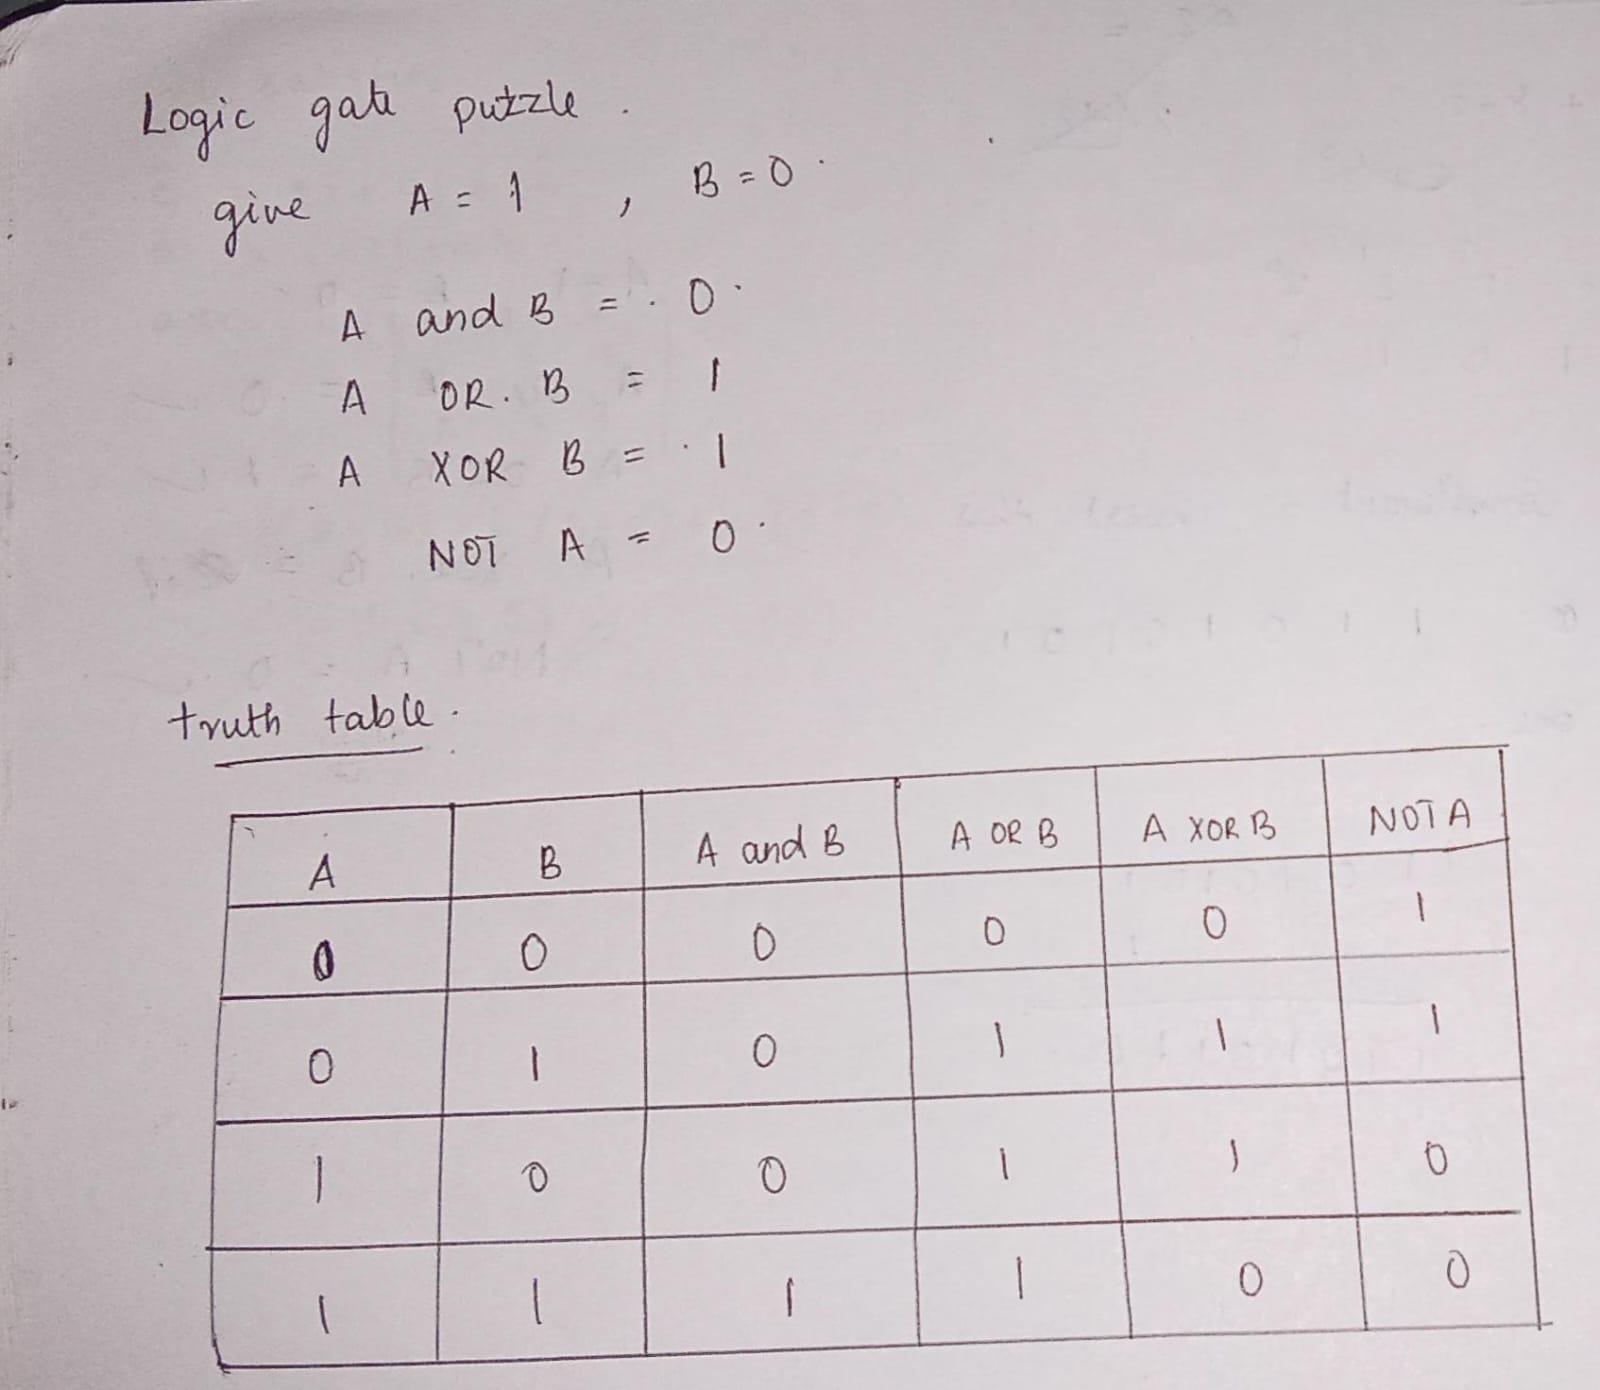 Logic gate puzzle.
give A = 1 , B = 0.
A and B = 0.
A OR. B = 1
A XOR B = 1
NOT A = 0.
truth table.
A B A and B A OR B A XOR B NOT A
0 0 0 0 0 1
0 1 0 1 1 1
1 0 0 1 1 0
1 1 1 1 0 0